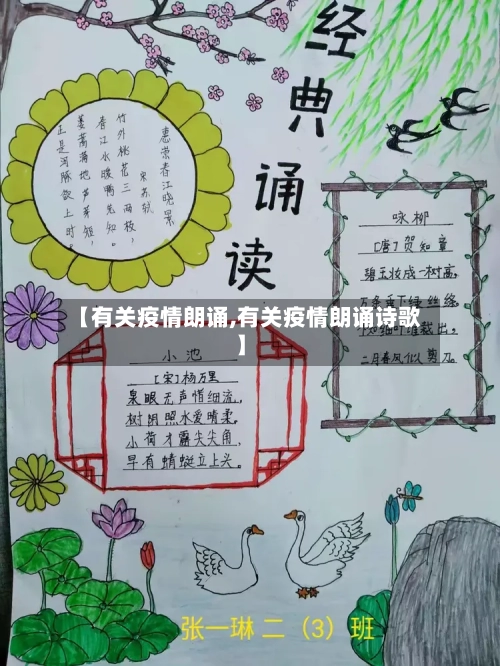 经典诵读
惠崇春江晓景
宋苏轼
竹外桃花三两枝，
春江水暖鸭先知。
蒌蒿满地芦芽短，
正是河豚欲上时。
咏柳
[唐]贺知章
碧玉妆成一树高，
万条垂下绿丝绦
裁出。
二月春风似剪刀。
【有关疫情朗诵,有关疫情朗诵诗歌
】
小池
[宋]杨万里
泉眼无声惜细流，
树阴照水爱晴柔。
小荷才露尖尖角，
早有蜻蜓立上头。
张一琳 二（3）班